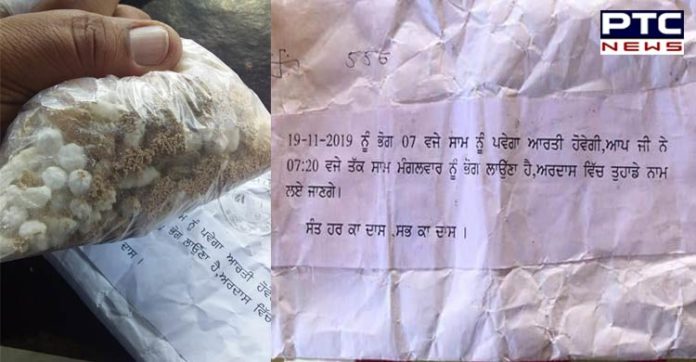 PTC
NEWS
556
19-11-2019 ਨੂੰ ਭੋਗ 07 ਵਜੇ ਸਾਮ ਨੂੰ ਪਵੇਗਾ ਆਰਤੀ ਹੋਵੇਗੀ,ਆਪ ਜੀ ਨੇ
07:20 ਵਜੇ ਤੱਕ ਸਾਮ ਮੰਗਲਵਾਰ ਨੂੰ ਭੋਗ ਲਾਉਂਣਾ ਹੈ,ਅਰਦਾਸ ਵਿੱਚ ਤੁਹਾਡੇ ਨਾਮ
ਲਏ ਜਾਣਗੇ।
ਸੰਤ ਹਰ ਕਾ ਦਾਸ ,ਸਭ ਕਾ ਦਾਸ ।
ਸਾਮ ਨੂੰ ਪਵੇਗਾ ਆਰਤੀ ਹੋਵੇ
ਨੂੰ ਭੋਗ ਲਾਉਂਣਾ ਹੈ,ਅਰਦਾਸ ਵਿੱਚ
ਦਾਸ ।